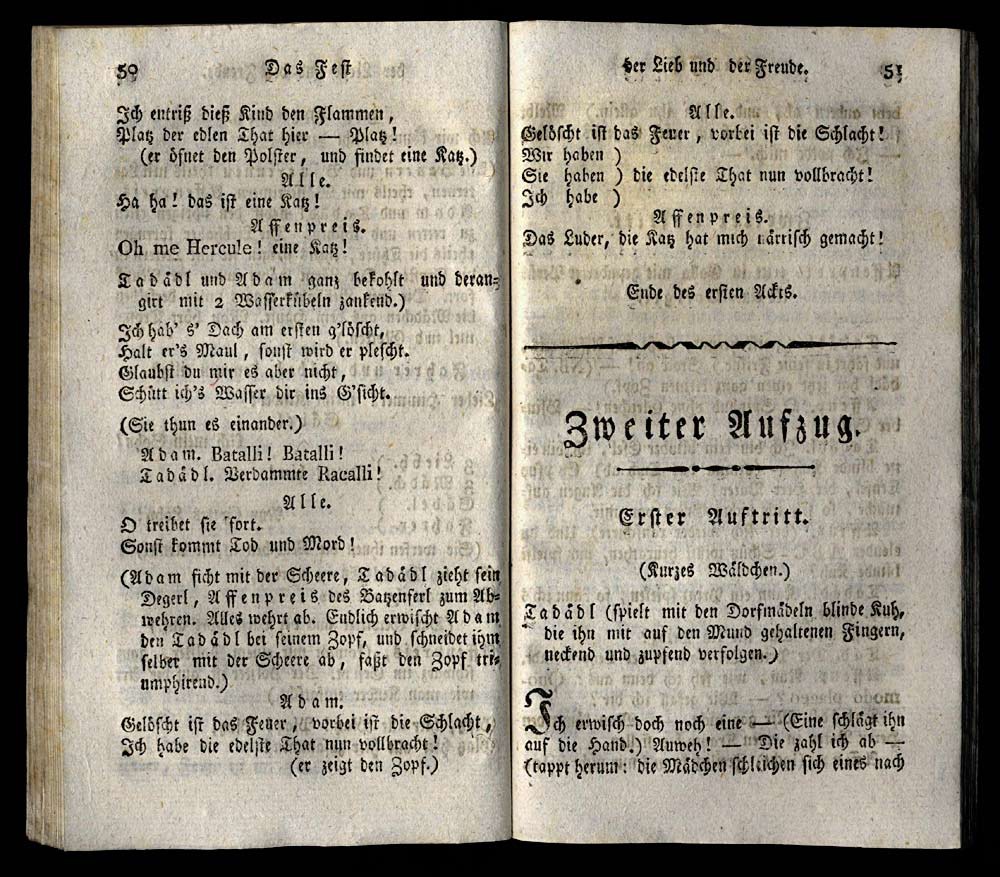 50 Das Fest
Ich entriß dieß Kind den Flammen,
Platz der edlen That hier — Platz!
(er öfnet den Polster, und findet eine Katz.)
Alle.
Ha ha! das ist eine Katz!
Affenpreis.
Oh me Hercule! eine Katz!
Tadädl und Adam ganz bekohlt und deran-
girt mit 2 Wasserkübeln zankend.)
Ich hab' s' Dach am ersten g'löscht,
Halt er's Maul, sonst wird er plescht.
Glaubst du mir es aber nicht,
Schütt ich's Wasser dir ins G'sicht.
(Sie thun es einander.)
Adam. Batalli! Batalli!
Tadädl. Verdammte Racalli!
Alle.
O treibet sie fort.
Sonst kommt Tod und Mord!
(Adam ficht mit der Scheere, Tadädl zieht sein
Degerl, Affenpreis des Batzenferl zum Ab-
wehren. Alles wehrt ab. Endlich erwischt Adam
den Tadädl bei seinem Zopf, und schneidet ihm
selber mit der Scheere ab, faßt den Zopf tri-
umphirend.)
Adam.
Gelöscht ist das Feuer, vorbei ist die Schlacht,
Ich habe die edelste That nun vollbracht!
(er zeigt den Zopf.)
der Lieb und der Freude. 51
Alle.
Gelöscht ist das Feuer, vorbei ist die Schlacht!
Wir haben )
Sie haben ) die edelste That nun vollbracht!
Ich habe )
Affenpreis.
Das Luder, die Katz hat mich närrisch gemacht!
Ende des ersten Ackts.
Zweiter Aufzug.
Erster Auftritt.
(Kurzes Wäldchen.)
Tadädl (spielt mit den Dorfmädeln blinde Kuh,
die ihn mit auf den Mund gehaltenen Fingern,
neckend und zupfend verfolgen.)
Ich erwisch doch noch eine — (Eine schlägt ihn
auf die Hand.) Auweh! — Die zahl ich ab —
(tappt herum: die Mädchen schleichen sich eines nach